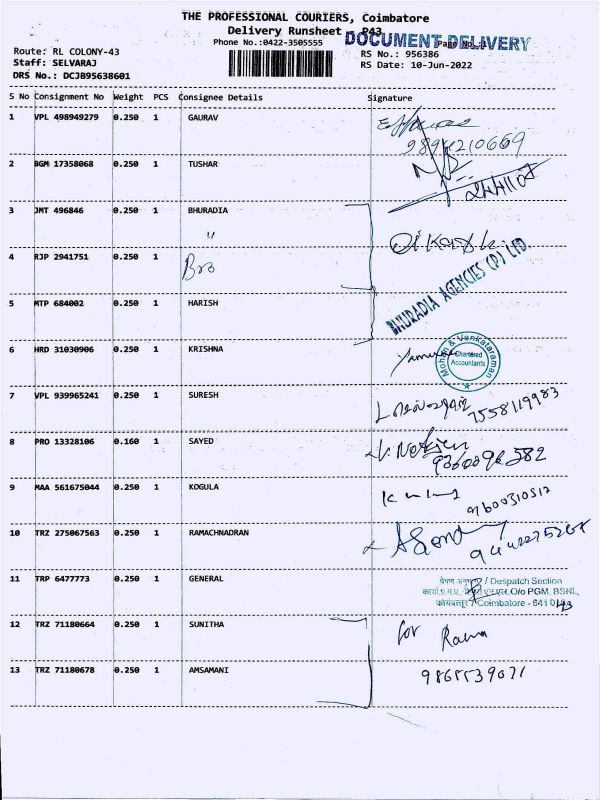 THE PROFESSIONAL COURIERS, Coimbatore
Delivery Runsheet - P43
DOCUMENT DELIVERY
Phone No.:0422-3505555
Page No.:1
Route: RL COLONY-43
Staff: SELVARAJ
DRS No.: DCJB95638601
RS No.: 956386
RS Date: 10-Jun-2022
S No Consignment No Weight PCS Consignee Details Signature
1 VPL 498949279 0.250 1 GAURAV
2 BGM 17358068 0.250 1 TUSHAR
3 JMT 496846 0.250 1 BHURADIA
4 RJP 2941751 0.250 1
BHURADIA AGENCIES (P) LTD.
5 MTP 684002 0.250 1 HARISH
6 HRD 31030906 0.250 1 KRISHNA
Mohan & Venkataraman
Chartered
Accountants
7 VPL 939965241 0.250 1 SURESH 7558119983
8 PRO 13328106 0.160 1 SAYED
9 MAA 561675044 0.250 1 KOGULA
10 TRZ 275067563 0.250 1 RAMACHNADRAN
11 TRP 6477773 0.250 1 GENERAL
/ Despatch Section
O/o PGM, BSNL,
कोयंबत्तूर / Coimbatore - 641 043
12 TRZ 71180664 0.250 1 SUNITHA for
13 TRZ 71180678 0.250 1 AMSAMANI